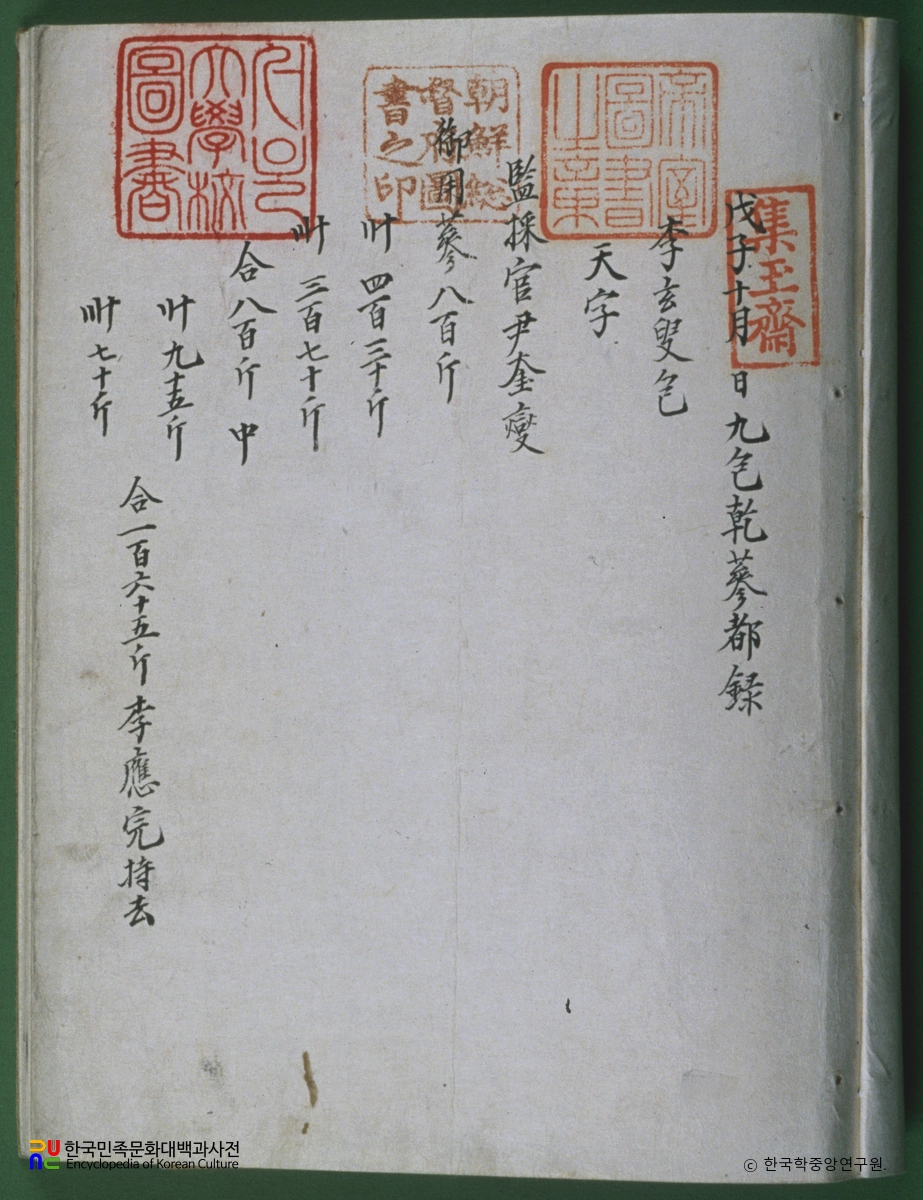 戊子十月 日 九包乾蔘都錄
李玄叟包
天字
監採官尹奎燮
御用蔘八百斤
卄 四百三十斤
卅 三百七十斤
合八百斤 中
卄九十五斤
卅七十斤
合一百六十五斤 李應完持去
集玉齋
帝室
圖書
之章
朝鮮總
督府圖
書之印
서울
大學校
圖書
한국민족문화대백과사전
Encyclopedia of Korean Culture
ⓒ 한국학중앙연구원.